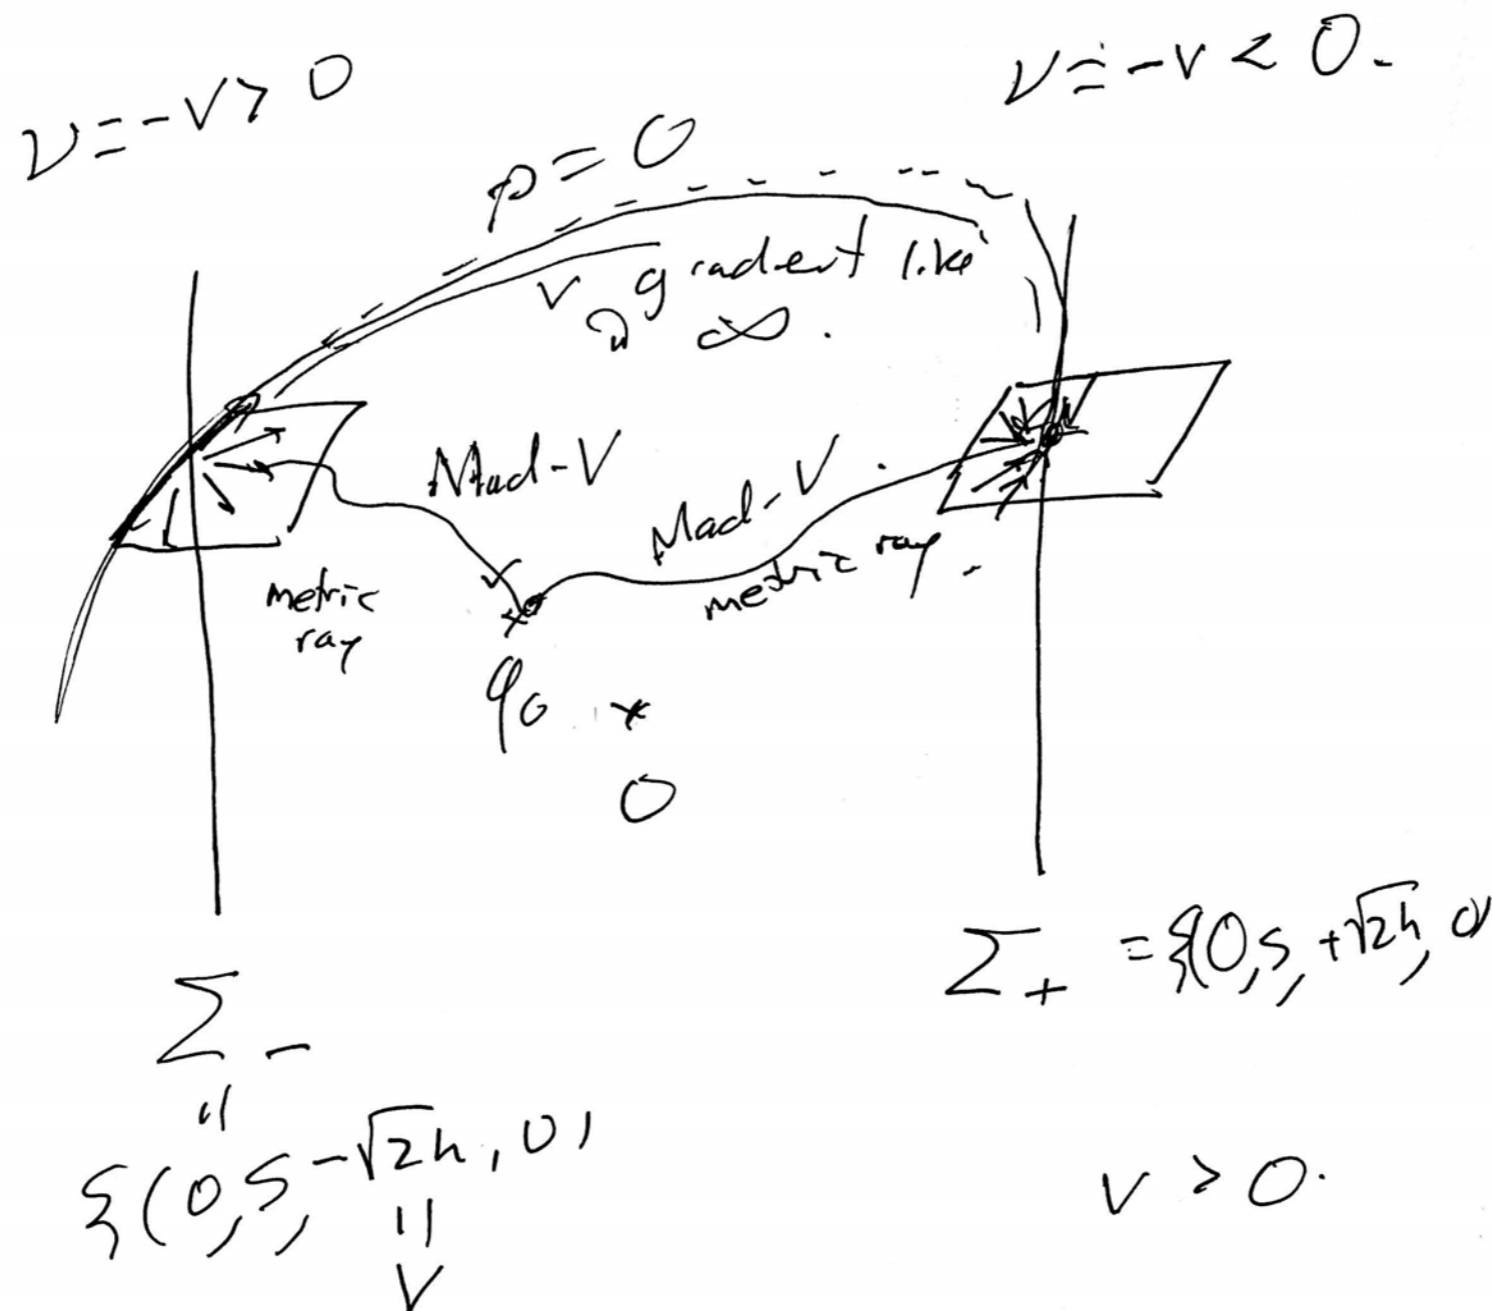 ν = -v > 0
ν = -v < 0.
ρ = 0
v gradient like
∞.
Mad-V
Mad-V.
metric ray
metric ray.
q0
0
Σ+ = {(0, s, +√2h, 0)
Σ-
=
{(0, s, -√2h, 0)
=
v
v > 0.